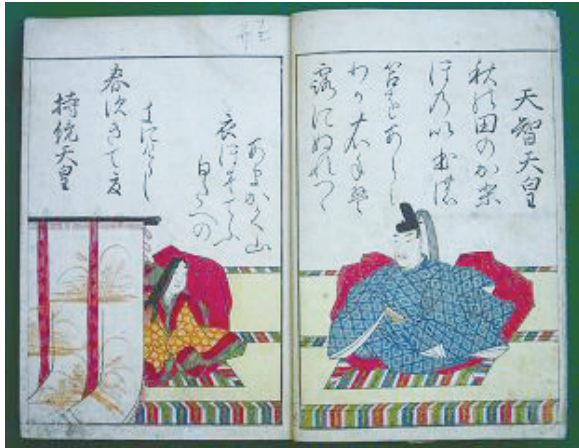 天智天皇
秋の田のかり
ほの以ほの
苫をあらみ
わか衣手は
露にぬれつゝ
持統天皇
春すきて夏
きにけらし
白たへの
衣ほすてふ
あまのかく山